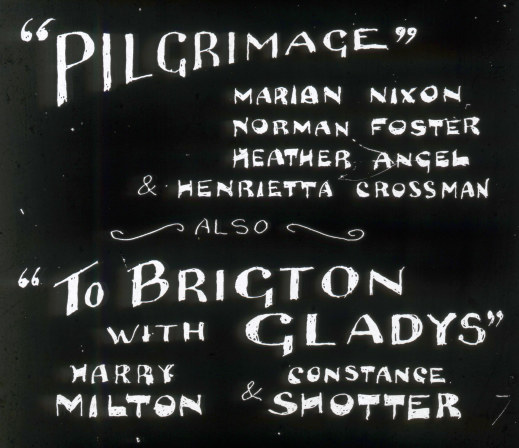 "PILGRIMAGE"
MARIAN NIXON
NORMAN FOSTER
HEATHER ANGEL
& HENRIETTA CROSSMAN
ALSO
"TO BRIGTON
WITH GLADYS"
HARRY CONSTANCE
MILTON & SHOTTER